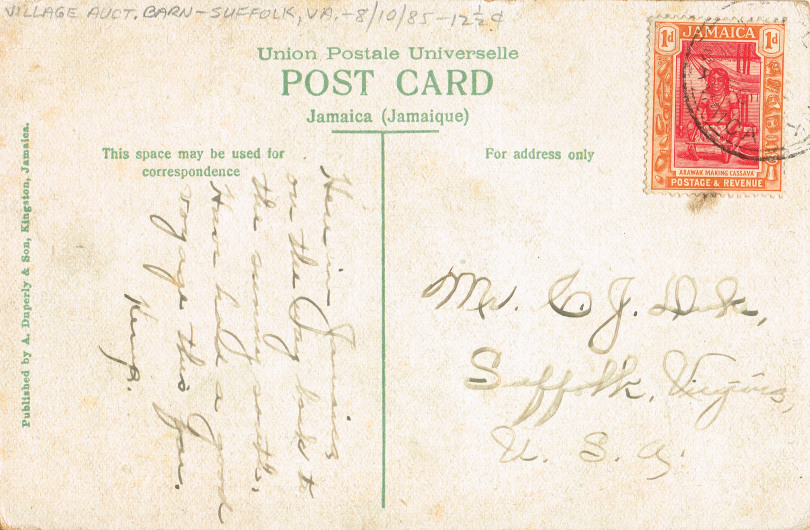 VILLAGE AUCT. BARN - SUFFOLK, VA. - 8/10/85 - 12½¢
Union Postale Universelle
POST CARD
Jamaica (Jamaique)
This space may be used for
correspondence
For address only
Published by A. Duperly & Son, Kingston, Jamaica.
JAMAICA
1d 1d
ARAWAK MAKING CASSAVA
POSTAGE & REVENUE
Here in Jamaica
on the way back to
the sunny south.
Have had a good
voyage this far.
Kemp.
Mr. C. J. Duke,
Suffolk, Virginia,
U. S. A.